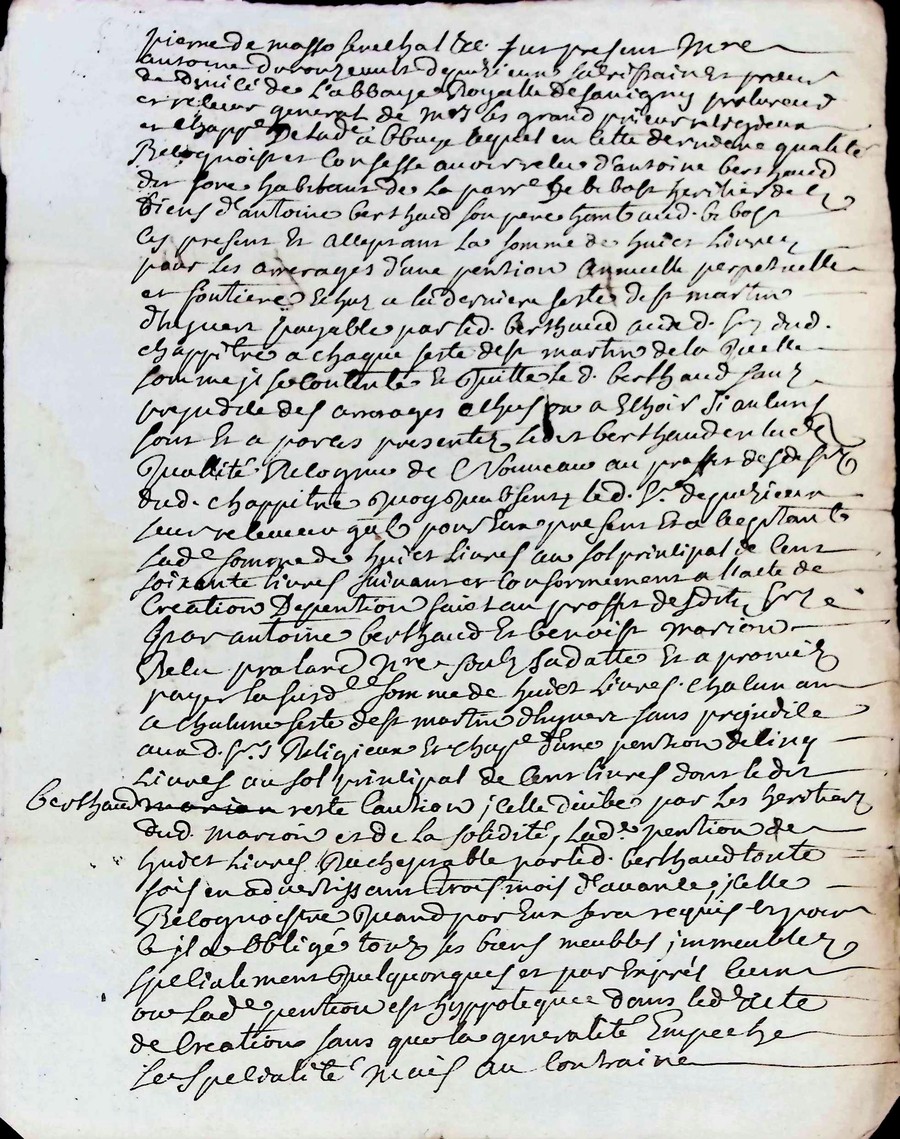 pierre de masso senechal &c. fut present Mre
antoine du rouzeault depuzieux sacristain Et prieur
de de l'abbaye Royalle de savigny procureur
et releveur general de mrs les grand prieur religieux
et chappe De lade abbaye lequel en cette derniere qualité
Recognoist et Confesse avoir receu d'antoine berthaud
dit fore habitant de La parre De bibost heritier de
biens d'antoine berthaud son pere hant aud. bibost
Cy present Et acceptant La somme de huict Livres
pour les arrerages d'une pention annuelle perpetuelle
et fontiere Echuz a la derniere feste de st martin
d'hyvert payable par led. berthaud aux d. srs dud.
chappitre a chaque feste de st martin de la quelle
somme je se Contente Et Quitte le d. berthaud sans
prejudice des arrerages echus ou a Echoir si aulcuns
sont Et a parces presentes ledit berthaud en lad.
Quallité Recognu de Nouveau au proffit desd. srs
dud. chappitre quoy qu'absents led. sr. depuzieux
leur releveur gal pour Eux present Et acceptant
lade somme de huict livres au sol principal de Cent
soixante livres suivant et Conformement a l'acte de
Creation De pention faict au proffit desdits srs
par antoine berthaud Et benoist marion
Receu pralard Nre soubz sa datte Et a promis
payer la susde somme de huict Livres chacun an
a chacune feste de st martin d'hyvert sans prejudice
aux d. srs Religieux Et chape d'une pention de cinq
Livres au sol principal de Cent livres dont ledit
berthaud marion reste Caution jcelle deube par Les heritiers
dud. marion et de la solidité, Lade pention de
huict Livres Racheptable par led. berthaud toute
fois en advertissant trois mois d'avance, jcelle
Recognoistre Quand par Eux sera requis Et pour
ce jl a obligé tous ses biens meubles jmmeubles
specialement Quelquonques et par Exprés ceux
ou Lade pention est hyppotequee dans led. acte
de Creation sans que la generalité Empeche
La Specialité mais au contraire